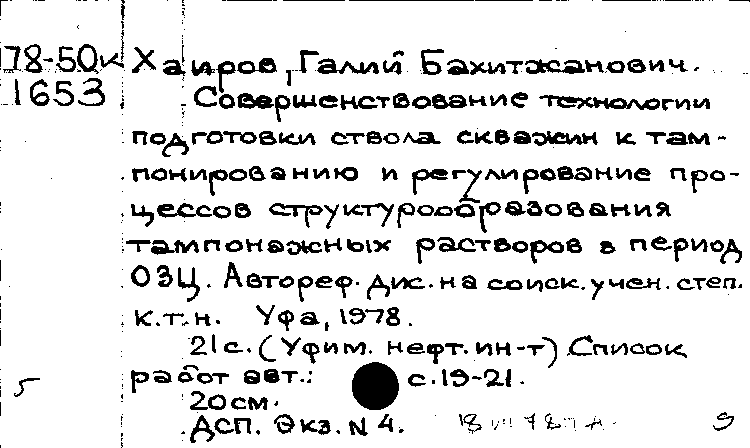 78-50к Хаиров, Галий Бахитжанович.
1653 Совершенствование технологии
подготовки ствола скважин к там-
понированию и регулирование про-
цессов структурообразования
тампонажных растворов в период
ОЗЦ. Автореф. дис. на соиск. учен. степ.
к.т.н. Уфа, 1978.
21с. (Уфим. нефт. ин-т) Список
5 работ авт.: с.19-21.
20см.
ДСП. Экз. N 4.